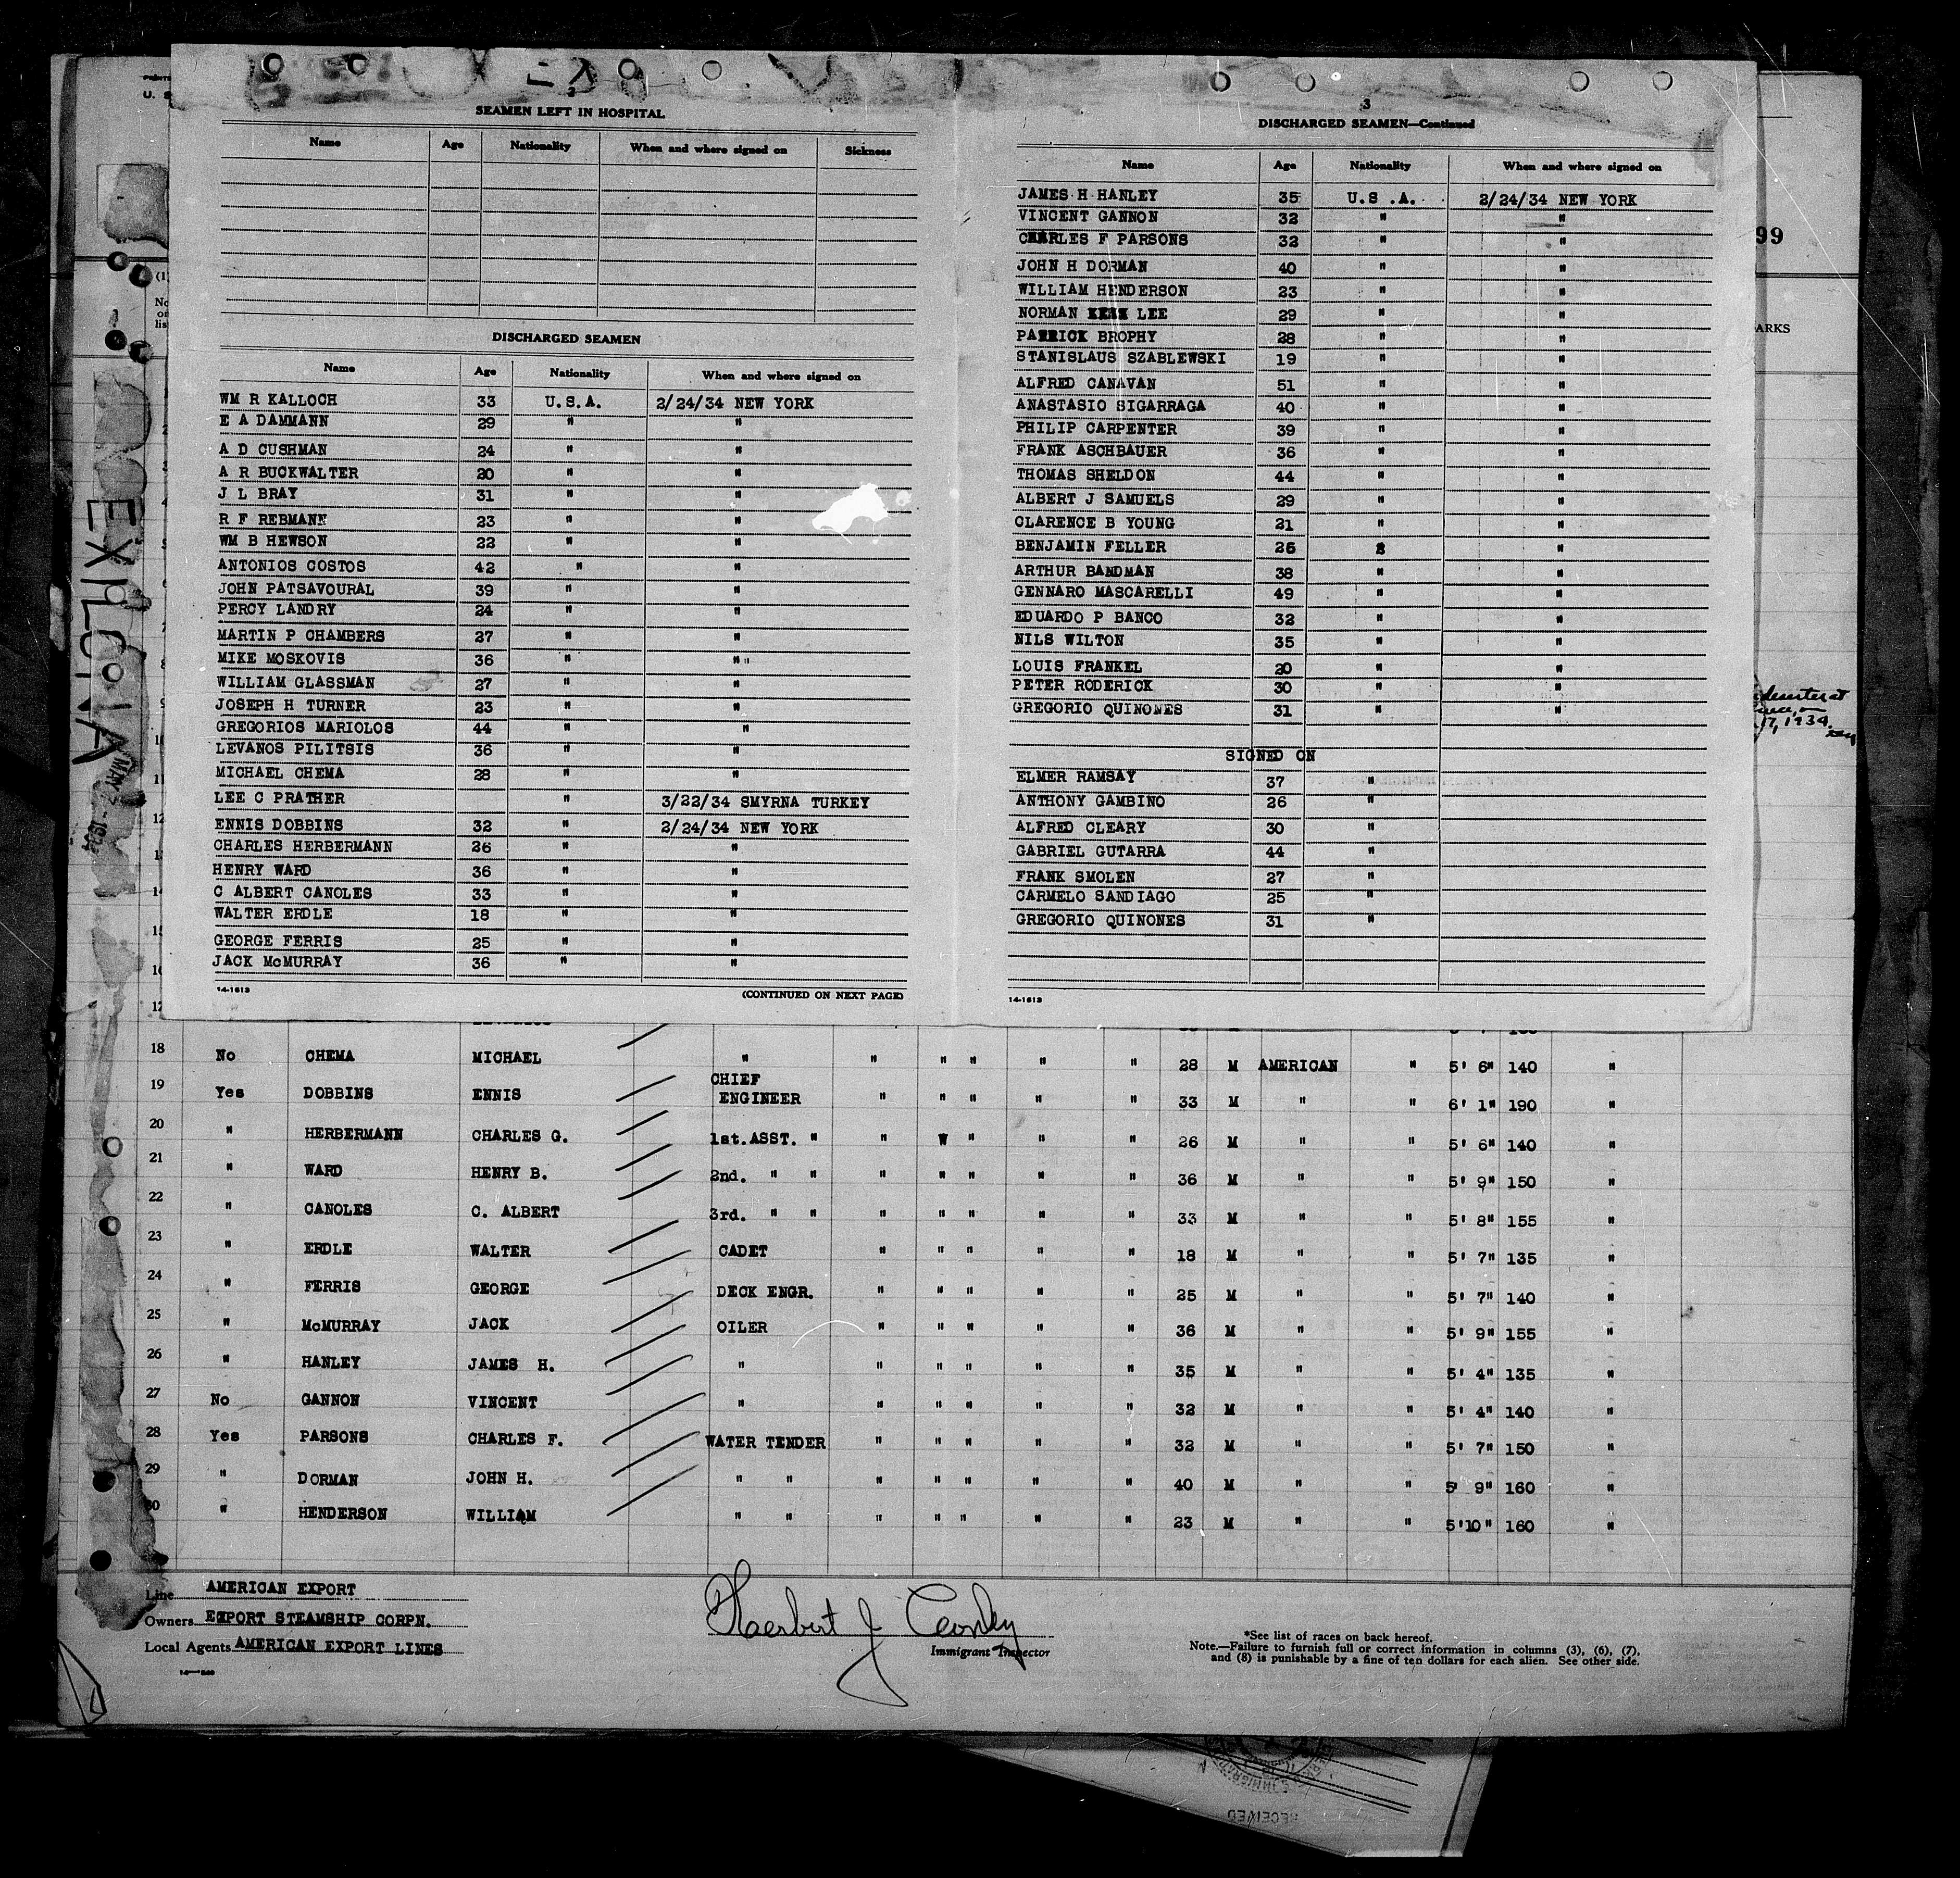 2
SEAMEN LEFT IN HOSPITAL
Name Age Nationality When and where signed on Sickness
DISCHARGED SEAMEN
Name Age Nationality When and where signed on
WM R KALLOCH 33 U.S.A. 2/24/34 NEW YORK
E A DAMMANN 29 " "
A D CUSHMAN 24 " "
A R BUCKWALTER 20 " "
J L BRAY 31 " "
R F REBMANN 23 " "
WM B HEWSON 22 " "
ANTONIOS COSTOS 42 " "
JOHN PATSAVOURAL 39 " "
PERCY LANDRY 24 " "
MARTIN P CHAMBERS 27 " "
MIKE MOSKOVIS 36 " "
WILLIAM GLASSMAN 27 " "
JOSEPH H TURNER 23 " "
GREGORIOS MARIOLOS 44 " "
LEVANOS PILITSIS 36 " "
MICHAEL CHEMA 28 " "
LEE C PRATHER " 3/22/34 SMYRNA TURKEY
ENNIS DOBBINS 32 " 2/24/34 NEW YORK
CHARLES HERBERMANN 26 " "
HENRY WARD 36 " "
C ALBERT CANOLES 33 " "
WALTER ERDLE 18 " "
GEORGE FERRIS 25 " "
JACK McMURRAY 36 " "
14-1613 (CONTINUED ON NEXT PAGE)
3
DISCHARGED SEAMEN—Continued
Name Age Nationality When and where signed on
JAMES H HANLEY 35 U.S.A. 2/24/34 NEW YORK
VINCENT GANNON 32 " "
CHARLES F PARSONS 32 " "
JOHN H DORMAN 40 " "
WILLIAM HENDERSON 23 " "
NORMAN LEE 29 " "
PATRICK BROPHY 28 " "
STANISLAUS SZABLEWSKI 19 " "
ALFRED CANAVAN 51 " "
ANASTASIO SIGARRAGA 40 " "
PHILIP CARPENTER 39 " "
FRANK ASCHBAUER 36 " "
THOMAS SHELDON 44 " "
ALBERT J SAMUELS 29 " "
CLARENCE B YOUNG 21 " "
BENJAMIN FELLER 26 "
ARTHUR BANDMAN 38 " "
GENNARO MASCARELLI 49 " "
EDUARDO P BANCO 32 " "
NILS WILTON 35 " "
LOUIS FRANKEL 20 " "
PETER RODERICK 30 " "
GREGORIO QUINONES 31 " "
SIGNED ON
ELMER RAMSAY 37 "
ANTHONY GAMBINO 26 "
ALFRED CLEARY 30 "
GABRIEL GUTARRA 44 "
FRANK SMOLEN 27 "
CARMELO SANDIAGO 25 "
GREGORIO QUINONES 31 "
14-1613
EXPLONA
MAY 7 - 1934
99
ARKS
7, 1934.
18 No CHEMA MICHAEL " " " " " " 28 M AMERICAN " 5' 6" 140 "
19 Yes DOBBINS ENNIS CHIEF ENGINEER " " " " " 33 M " " 6' 1" 190 "
20 " HERBERMANN CHARLES G. 1st. ASST. " " W " " " 26 M " " 5' 6" 140 "
21 " WARD HENRY B. 2nd. " " " " " " " 36 M " " 5' 9" 150 "
22 " CANOLES C. ALBERT 3rd. " " " " " " " 33 M " " 5' 8" 155 "
23 " ERDLE WALTER CADET " " " " " 18 M " " 5' 7" 135 "
24 " FERRIS GEORGE DECK ENGR. " " " " " 25 M " " 5' 7" 140 "
25 " McMURRAY JACK OILER " " " " " 36 M " " 5' 9" 155 "
26 " HANLEY JAMES H. " " " " " " 35 M " " 5' 4" 135 "
27 No GANNON VINCENT " " " " " " 32 M " " 5' 4" 140 "
28 Yes PARSONS CHARLES F. WATER TENDER " " " " " 32 M " " 5' 7" 150 "
29 " DORMAN JOHN H. " " " " " " " 40 M " " 5' 9" 160 "
30 " HENDERSON WILLIAM " " " " " " " 23 M " " 5'10" 160 "
Line AMERICAN EXPORT
Owners EXPORT STEAMSHIP CORPN.
Local Agents AMERICAN EXPORT LINES
Herbert J
Immigrant Inspector
*See list of races on back hereof.
Note.—Failure to furnish full or correct information in columns (3), (6), (7),
and (8) is punishable by a fine of ten dollars for each alien. See other side.
RECEIVED